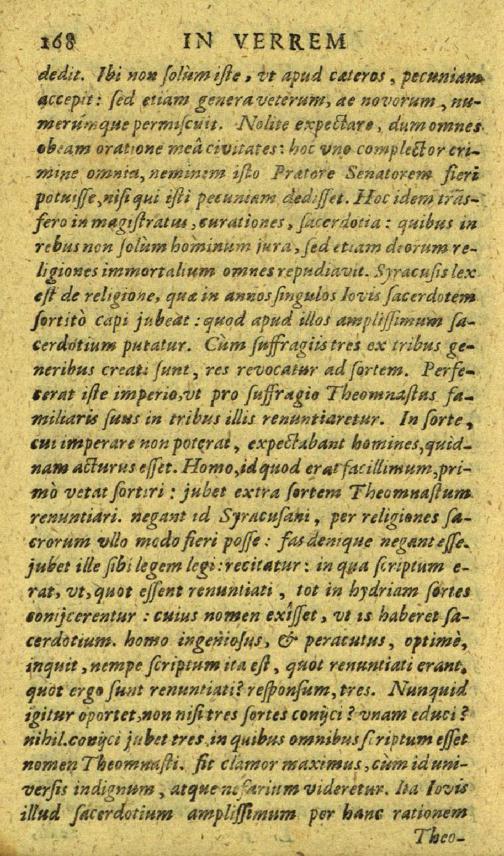 168 IN VERREM
dedit. Ibi non ſolùm iſte, vt apud cæteros, pecuniam
accepit: ſed etiam genera veterum, ac novorum, nu-
merúmque permiſcuit. Nolite expectare, dum omnes
obeam oratione meâ civitates: hoc vno complector cri-
mine omnia, neminem iſto Prætore Senatorem fieri
potuiſſe, niſi qui iſti pecuniam dediſſet. Hoc idem trãs-
fero in magiſtratus, curationes, ſacerdotia: quibus in
rebus non ſolùm hominum jura, ſed etiam deorum re-
ligiones immortalium omnes repudiavit. Syracuſis lex
eſt de religione, quæ in annos ſingulos Iovis ſacerdotem
ſortitò capi jubeat: quod apud illos ampliſſimum ſa-
cerdotium putatur. Cùm ſuffragiis tres ex tribus ge-
neribus creati ſunt, res revocatur ad ſortem. Perfe-
cerat iſte imperio, vt pro ſuffragio Theomnaſtus fa-
miliaris ſuus in tribus illis renuntiaretur. In ſorte,
cui imperare non poterat, expectabant homines, quid-
nam acturus eſſet. Homo, id quod erat facillimum, pri-
mò vetat ſortiri: jubet extra ſortem Theomnaſtum
renuntiari. negant id Syracuſani, per religiones ſa-
crorum vllo modo fieri poſſe: fas denique negant eſſe.
jubet ille ſibi legem legi: recitatur: in qua ſcriptum e-
rat, vt, quot eſſent renuntiati, tot in hydriam ſortes
conijcerentur: cuius nomen exîſſet, vt is haberet ſa-
cerdotium. homo ingeniosus, & peracutus, optimè,
inquit, nempe ſcriptum ita eſt, quot renuntiati erant,
quòt ergo ſunt renuntiati? reſponſum, tres. Nunquid
igitur oportet, non niſi tres ſortes conijci? vnam educi?
nihil. conijci jubet tres, in quibus omnibus ſcriptum eſſet
nomen Theomnaſti. fit clamor maximus, cùm id uni-
verſis indignum, atque nefarium videretur. Ita Iovis
illud ſacerdotium ampliſſimum per hanc rationem
Theo-